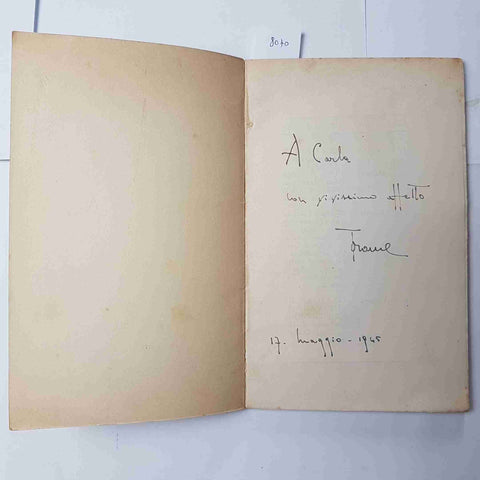 8070
A Carla
con vivissimo affetto
17. Maggio - 1945